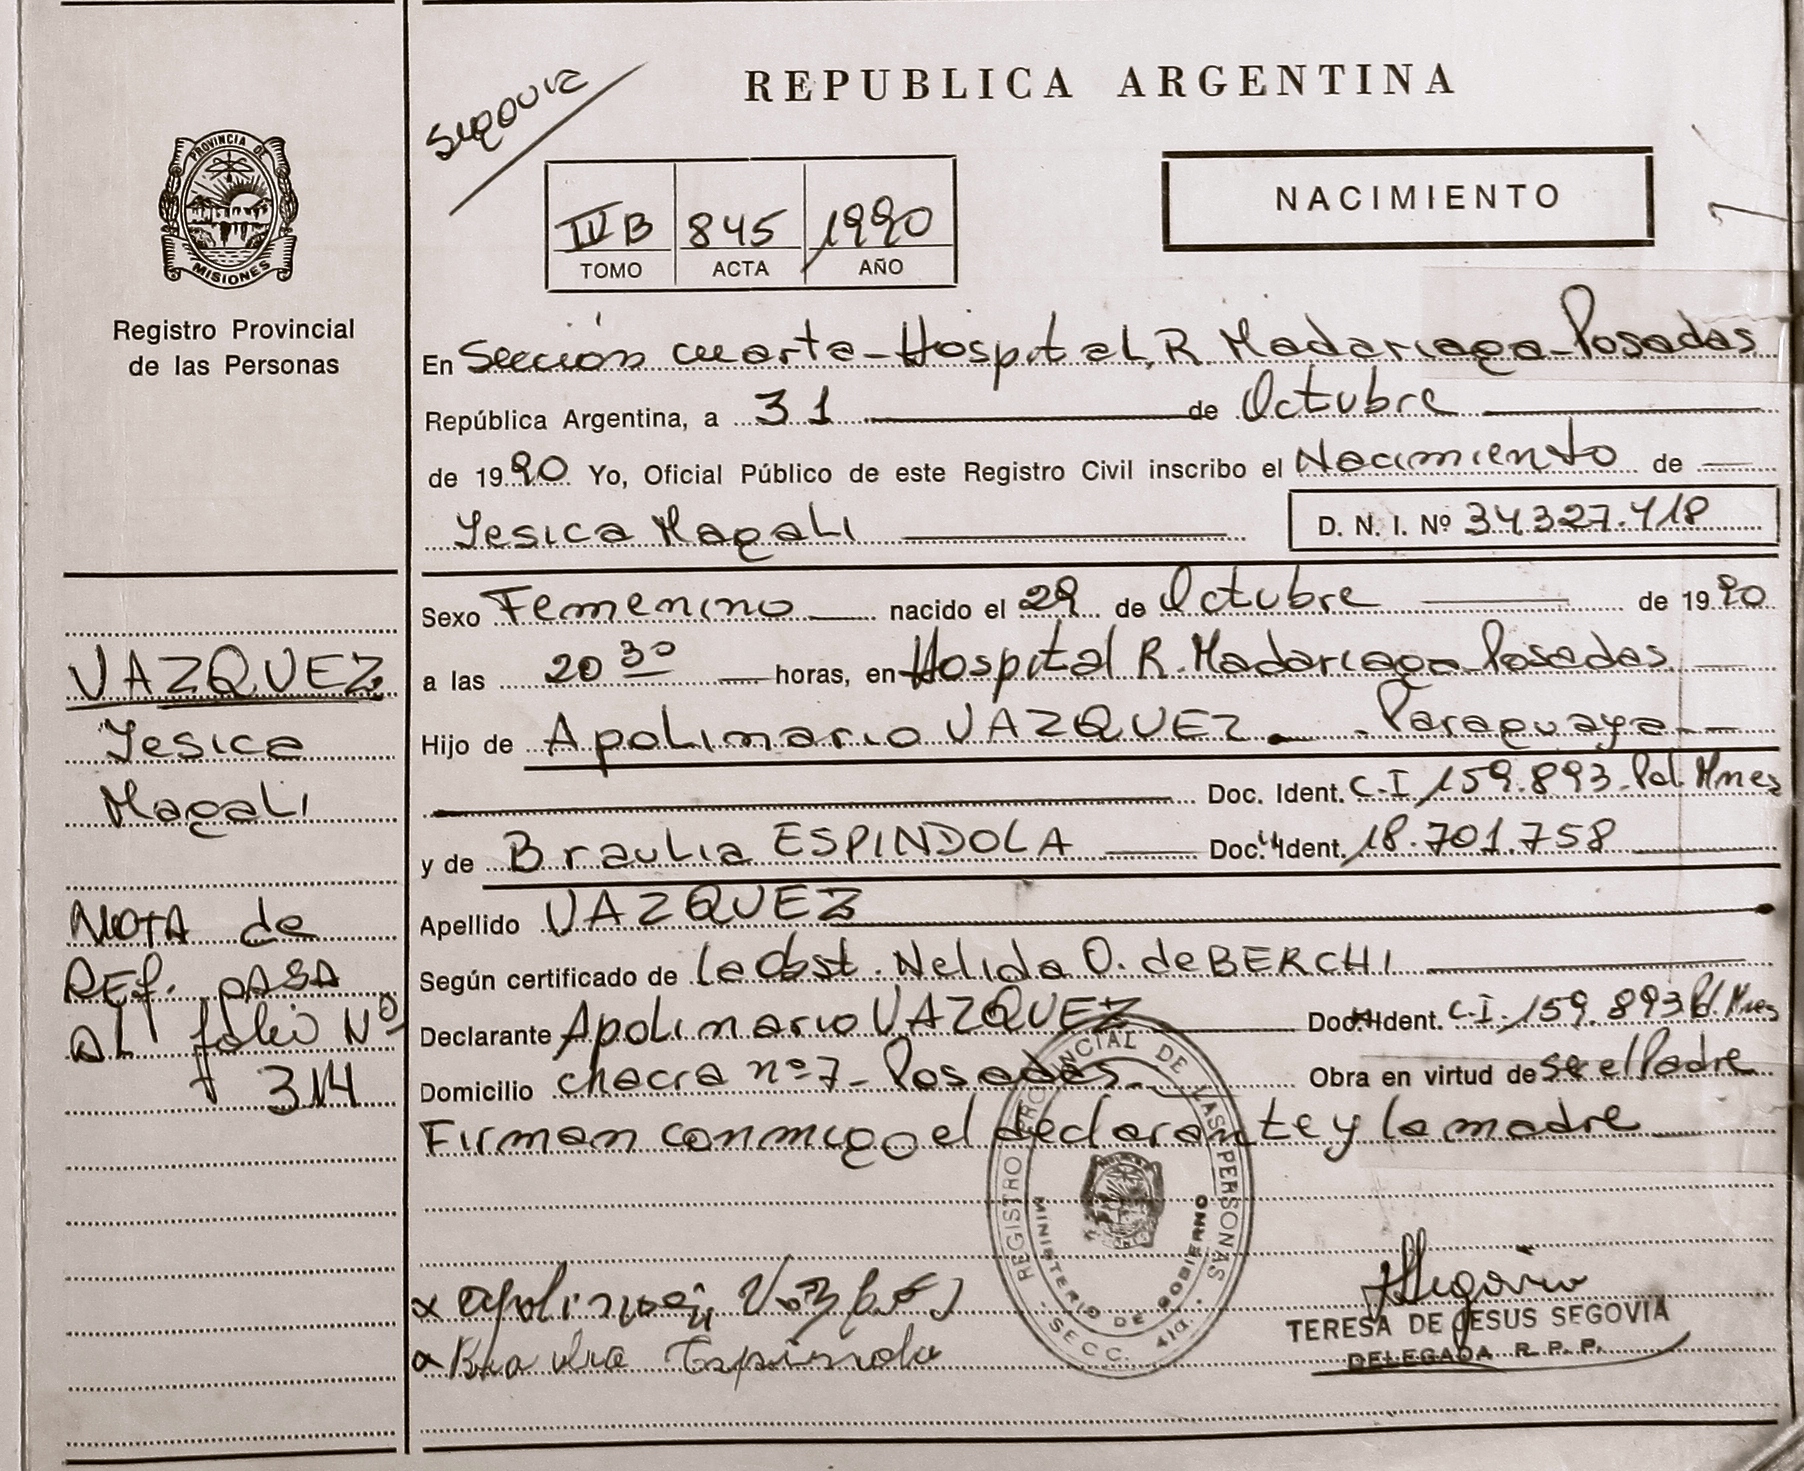 PROVINCIA DE
MISIONES
Registro Provincial
de las Personas
VAZQUEZ
Yesica
Magali
NOTA de
REF. pASA
AL folio Nº
314
Segovia
REPUBLICA ARGENTINA
IV B 845 1990
TOMO ACTA AÑO
NACIMIENTO
En Sección cuarta-Hospital R. Madariaga-Posadas
República Argentina, a 31 de Octubre
de 1990 Yo, Oficial Público de este Registro Civil inscribo el Nacimiento de
Yesica Magali D. N. I. Nº 34.327.418
Sexo Femenino nacido el 29 de Octubre de 1990
a las 20 30 horas, en Hospital R. Madariaga-Posadas
Hijo de Apolinario VAZQUEZ - Paraguaya
Doc. Ident. C-I 159.893-Pol. Mnes
y de Braulia ESPINDOLA Doc. Ident. 18.701.758
Apellido VAZQUEZ
Según certificado de la Obst. Nelida O. de BERCHI
Declarante Apolinario VAZQUEZ Doc. Ident. C-I-159.893 Pol. Mnes
Domicilio chacra nº 7-Posadas Obra en virtud de se el Padre
Firman conmigo el declarante y la madre
REGISTRO PROVINCIAL DE LAS PERSONAS
MINISTERIO DE GOBIERNO
SECC. 4ta.
Espindola
Segovia
TERESA DE JESUS SEGOVIA
DELEGADA R. P. P.